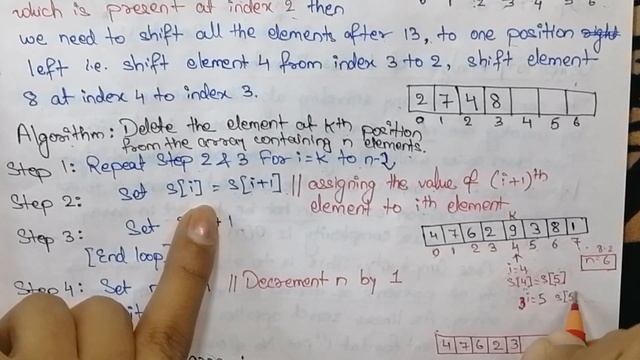 which is present at index 2 then
we need to shift all the elements after 13, to one position right
left i.e. shift element 4 from index 3 to 2, shift element
8 at index 4 to index 3.
2 7 4 8
0 1 2 3 4 5 6
Algorithm: Delete the element at Kth position
from the array containing n elements.
Step 1: Repeat Step 2 & 3 For i=K to n-2
Step 2: Set S[i] = S[i+1] // assigning the value of (i+1)th
element to ith element
Step 3: Set
[End loop
K
4 7 6 2 9 3 8 1
0 1 2 3 4 5 6 7
i=4
S[4]=S[5]
i=5 S[5]
8-2
n=6
Step 4: Set // Decrement n by 1
4 7 6 2 3